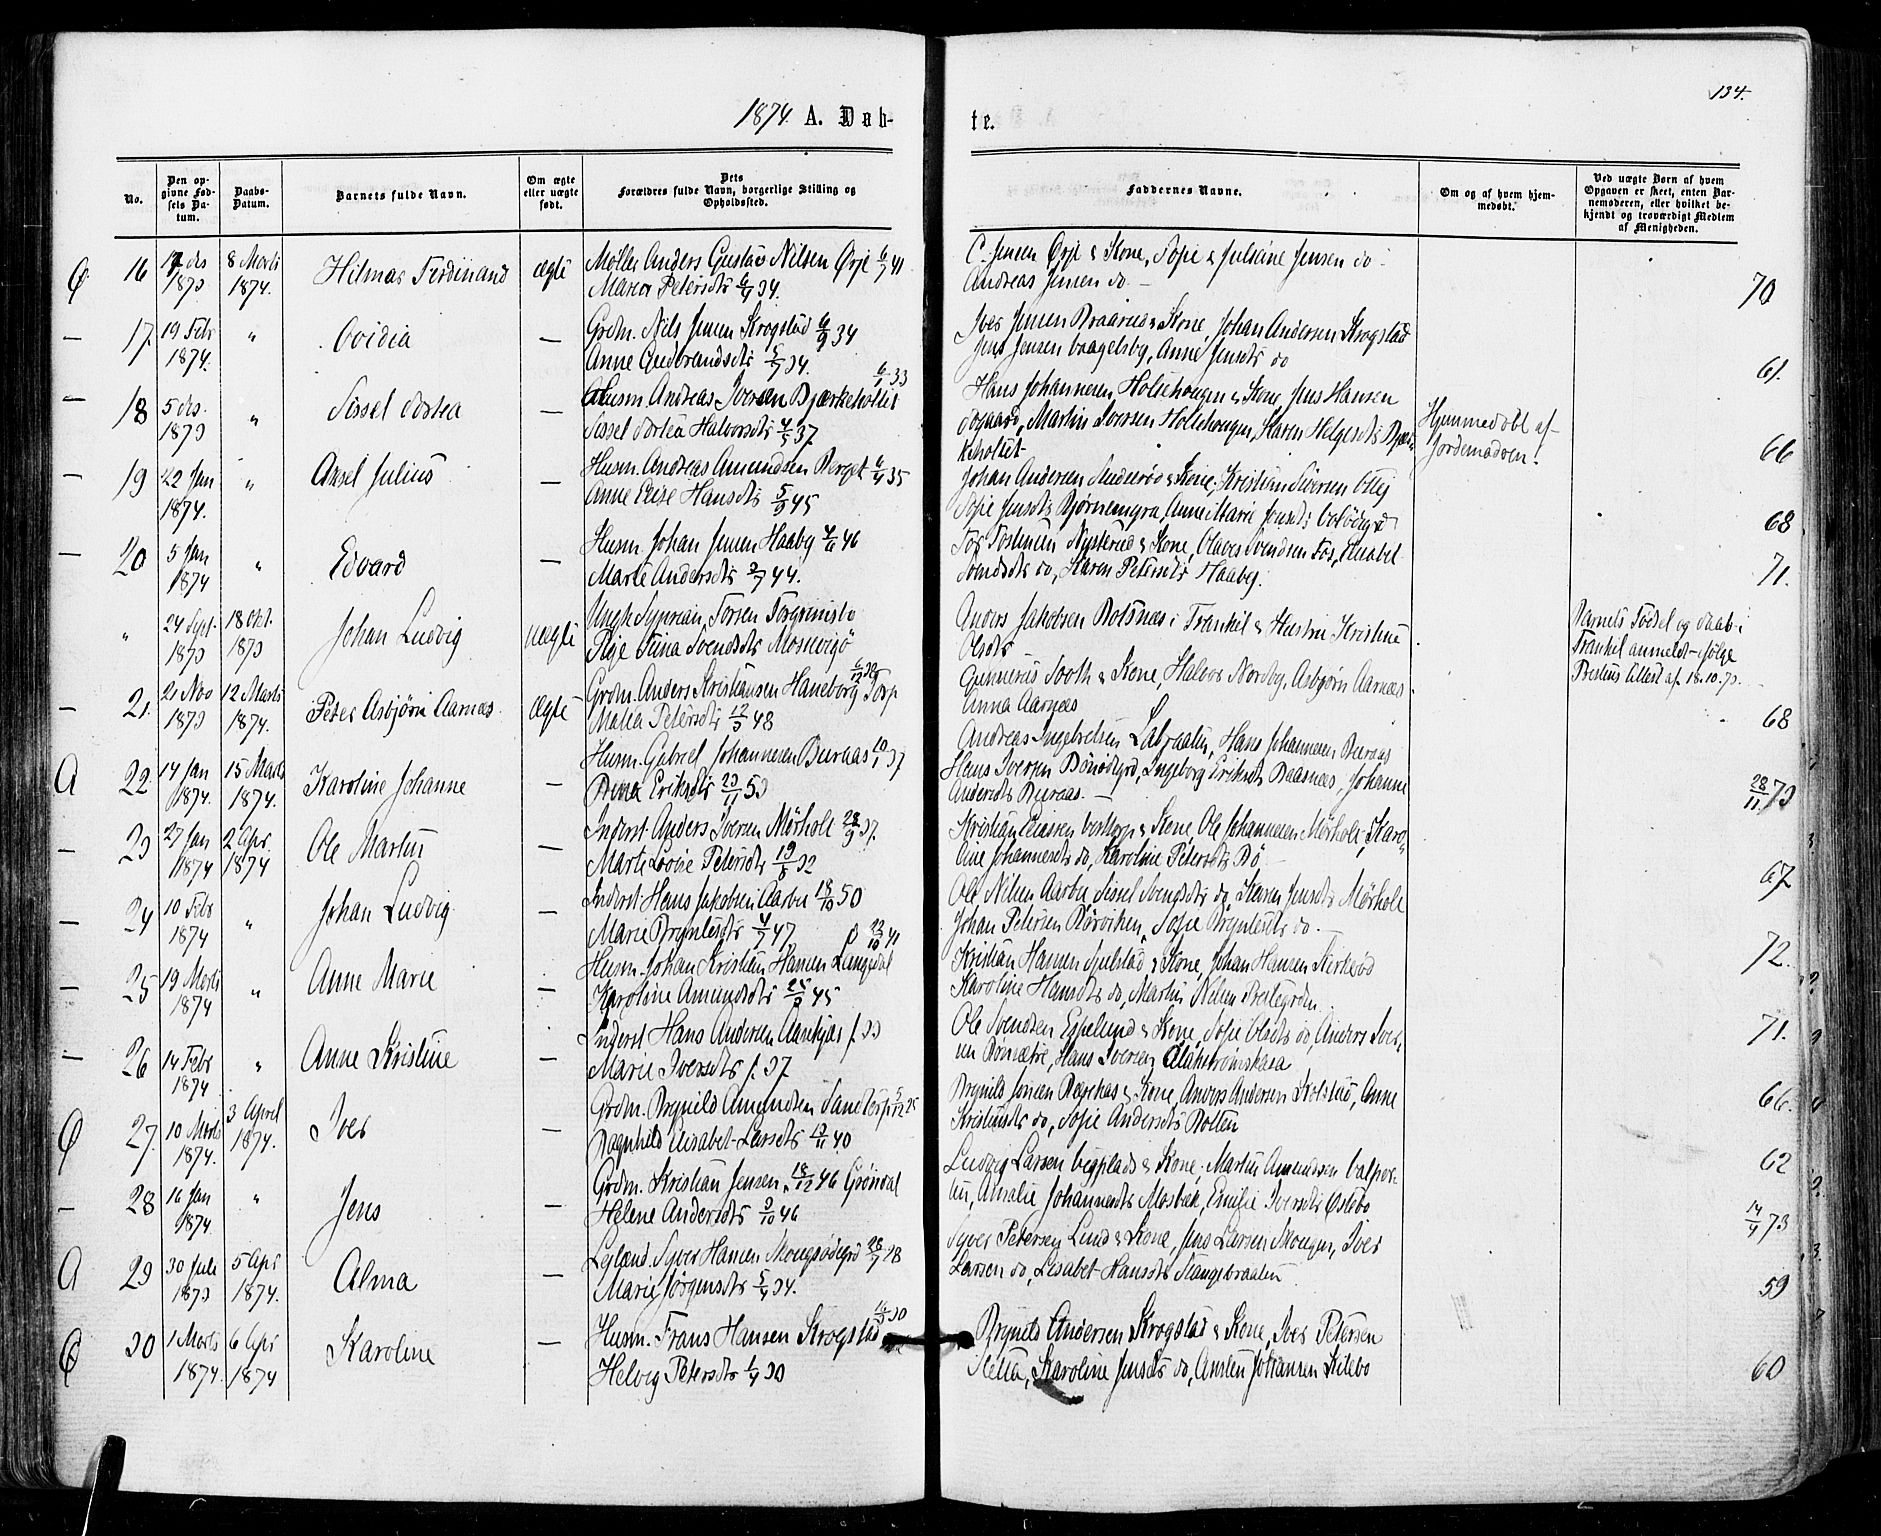 134.
1874. A. Døb-
te.
No.
Den opgivne Fødsels Datum.
Daabs-Datum.
Barnets fulde Navn.
Om ægte eller uægte født.
Dets Forældres fulde Navn, borgerlige Stilling og Opholdssted.
Faddernes Navne.
Om og af hvem hjemmedøbt.
Ved uægte Børn af hvem Opgaven er skeet, enten Barnemoderen, eller hvilket bekjendt og troværdigt Medlem af Menigheden.
Ø 16 1873 8 Marts 1874. Hilmar Ferdinand ægte Møller Anders Gustav Nilsen Ørje 6/7 41
Maria Petersdtr 6/4 34.
C. Jensen Ørje & Kone, Sofie & Julsine Jensen do -
Andreas Jensen do. - 70
— 17. 19 Febr 1874. " Ovidia — Grdm. Nils Jensen Krogstad 6/9 34
Anne Gudbrandsdtr 5/7 34.
Iver Jensen Braarud & Kone, Johan Andersen Krogstad
Jens Jensen Vaagelsby, Anne Jensdtr do 61.
— 18 5 des. 1873 " Sissel Dortea — Husm. Andreas Iversen Bjærkeholtet 6/1 33
Sissel Dortea Halvorsdtr 4/5 37
Hans Johannesen Holtehougen & Kone, Jens Hansen
Martin Iversen Holtehougen, Karen Helgesdtr Bjær-
keholtet
Hjemmedøbt af
Jordemoderen. 66
— 19 22 Jan 1874. " Axel Julius — Husm. Andreas Amundsen Berget 6/4 35
Anne Elise Hansdtr 5/9 45
Johan Andersen & Kone, Kristian Iversen
Sofie Jensdtr Bjørnemyra, Anne Marie Jensdtr 68
— 20 5 Jan 1874 " Edvard — Husm. Johan Jensen Haaby 4/6 46
Marte Andersdtr 2/7 44.
Tor Tostensen Nysterud & Kone, Olaves Svendsen Fos,
Svendsdtr do, Karen Petersdtr Haaby. 71.
" 24 Sept 1873 18 Okt. 1873 Johan Ludvig uægte Ungk. Syprian Torsen Torgrimsbo
Pige Tina Svendsdtr Mosevigø
Anders Jakobsen Botsnæs i Trankil & Hustru Kristine
Olsdtr
Barnets Fødsel og Daab i
Trankil anmeldt ifølge
Prestens Attest af 18.10.73.
— 21. 21 Nov 1873 12 Marts 1874. Peter Asbjørn Aarnæs. Ægte Grdm. Anders Kristiansen Haneborg Torp
Maria Petersdtr 12/3 48
Gunnerus Sooth & Kone, Halvor Nordby, Asbjørn Aarnæs
Anna Aarnæs 68
A 22. 14 Jan 1874. 15 Marts 1874. Karoline Johanne — Husm. Gabriel Johannesen Buraas 10/1 37
Eriksdtr 23/11 53
Andreas Ingebretsen Labraaten, Hans Johannesen Buraas
Hans Iversen Bønødegrd, Ingeborg Eriksdtr Baasnæs, Johanne
Andersdtr Buraas. — 28/11 73
— 23 27 Jan 1874 2 Apr. 1874 Ole Martin — Inderst. Anders Iversen Mørholt 28/9 37.
Marte Lovise Petersdtr 19/8 32
Kristian Classen & Kone, Ole Johannesen Mørholt, Karo-
line Johannesdtr do, Karoline Petersdtr Bø 67
— 24 10 Febr 1874 " Johan Ludvig — Inderst. Hans Jakobsen Aarbu 18/10 50
Marie Brynildsdtr 4/7 47,
Ole Nilsen Aarbu, Sissel Svendsdtr do, Karen Jensdtr Mørholt
Johan Petersen Rørviken, Sofie Brynildsdtr do. — 72.
— 25 19 Marts 1874 " Anne Marie — Husm. Johan Kristian Hansen Langedal 23/10 41
Karoline Amundsdtr 25/2 45
Kristian Hansen & Kone, Johan Hansen Kirkerød
Karoline Hansdtr do, Martin Nilsen Prestegrden 71.
— 26 14 Febr 1874 " Anne Kristine — Inderst Hans Andersen Aarekjær f. 33
Marie Iversdtr f. 37
Ole Svendsen Espelund & Kone, Sofie Olsdtr do, Anders Iver-
sen Bønsætre, Hans Iversen 66.
Ø 27. 10 Marts 1874. 3 April 1874. Iver — Grdm. Brynild Amundsen Sand Torp 5/12 25
Ragnhild Elisabet Larsdtr 13/11 40
Brynild Jonsen & Kone, Anders Andersen Kolstad, Anne
Kristiansdtr do, Sofie Andersdtr Rotten 62
— 28 16 Jan 1874. " Jens — Grdm. Kristian Jensen 18/12 46 Grøndal
Helene Andersdtr 3/10 46
Ludvig Larsen Bygplads & Kone, Martin Amundsen
Amalie Johannesdtr Mosbæk, Emilie Iversdtr Østebø 14/4 73
A 29 30 Juli 1873 5 Apr 1874. Alma — Syver Hansen Mougsødegrd 28/7 28
Marie Jørgensdtr 5/4 34.
Syver Petersen Lund & Kone, Jens Larsen Mougen, Iver
Larsen do, Lisabet Hansdtr Stangebraaten 59
Ø 30 1 Marts 1874. 6 Apr 1874 Karoline — Husm. Frans Hansen Krogstad 14/3 30
Helvig Petersdtr 1/4 30
Brynild Andersen Krogstad & Kone, Iver Petersen
Sletta, Karoline Jensdtr do, Ansten Johansen Kilebo 60